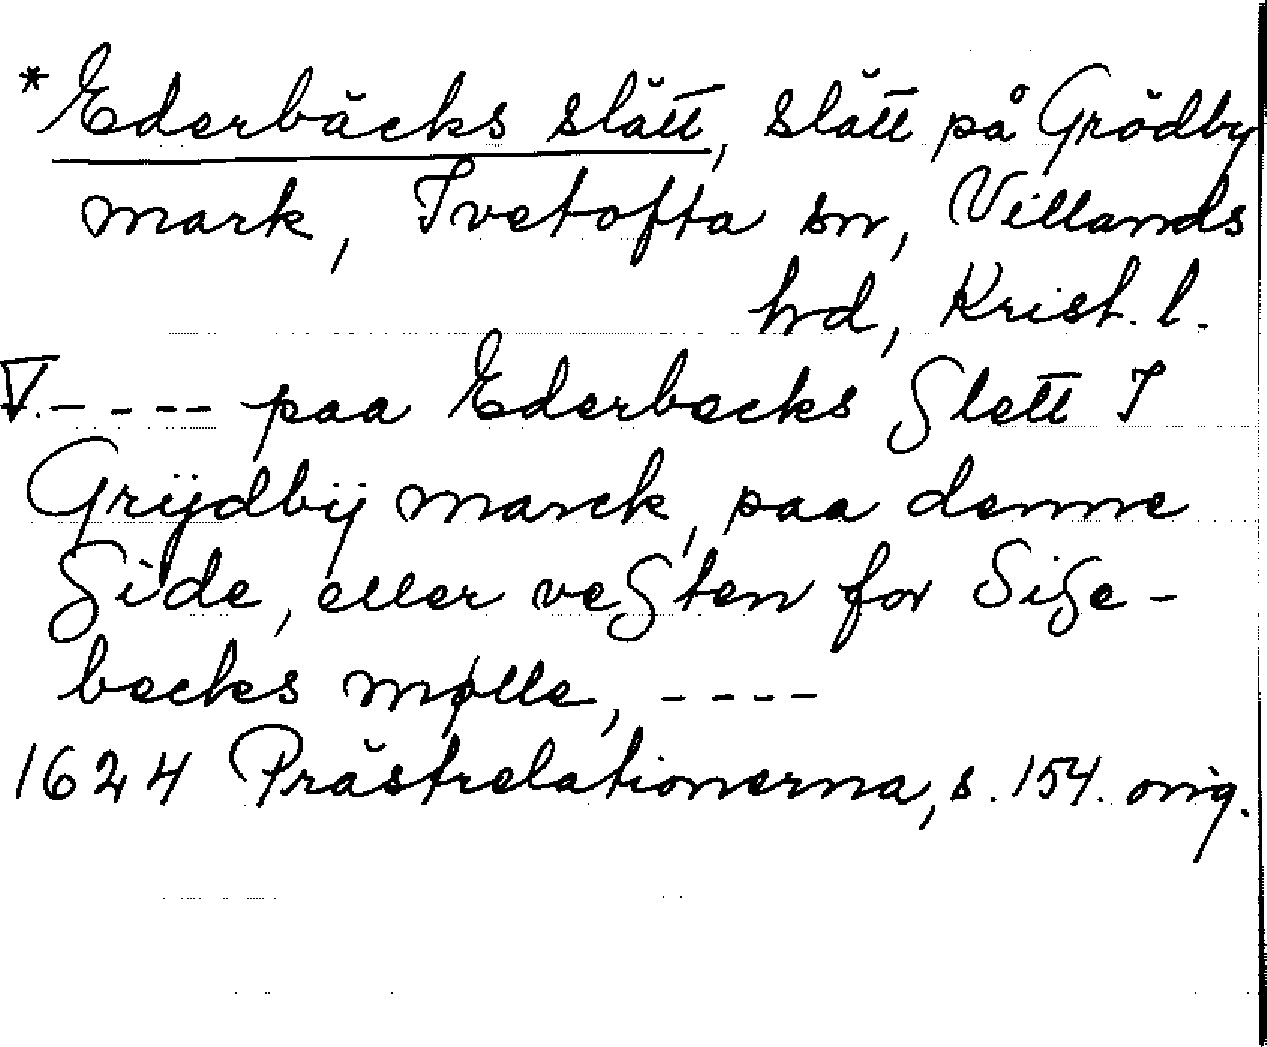 *Ederbäcks slätt, slätt på Grödby
mark, Ivetofta sn, Villands
hrd, Krist. l.
V. - - - - paa Ederbecks Slett I
Grÿdbÿ marck, paa denne
Side, eller vesten for Sise-
becks mølle, - - - -
1624 Prästrelationerna, s. 154. orig.